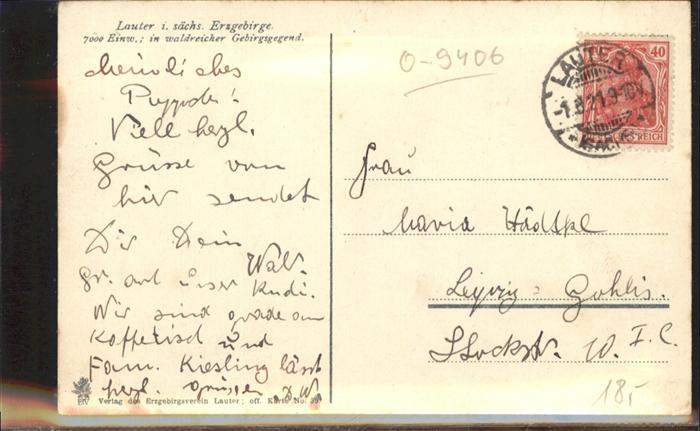 Lauter i. sächs. Erzgebirge.
7000 Einw.; in waldreicher Gebirgsgegend.
Mein liebes
Viell herzl.
Grüsse von
hir sendet
Dir Dein
Gr. auf unser Rudi.
Wir sind grade am
Kaffetisch und
Fam. Kiesling lässt
herzl. grüssen. D. W.
BV Verlag des Erzgebirgsverein Lauter; off. Karte No.
0-9406
40
LAUTER
DEUTSCHES REICH
Frau
Maria
Leipzig-Gohlis.
10. I. C.
18,-